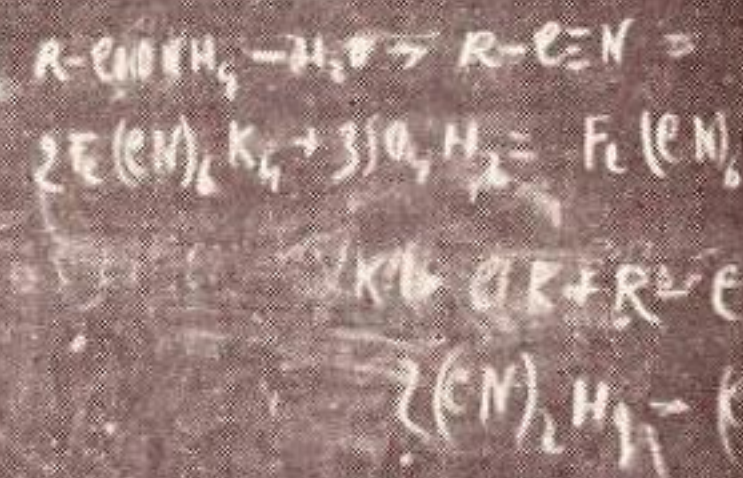 R-COONH₄ -H₂O → R-C≡N =
2Fe(CN)₆K₄ + 3SO₄H₂ = Fe(CN)₆
K + R-C
2(CN)₂H₂ - (